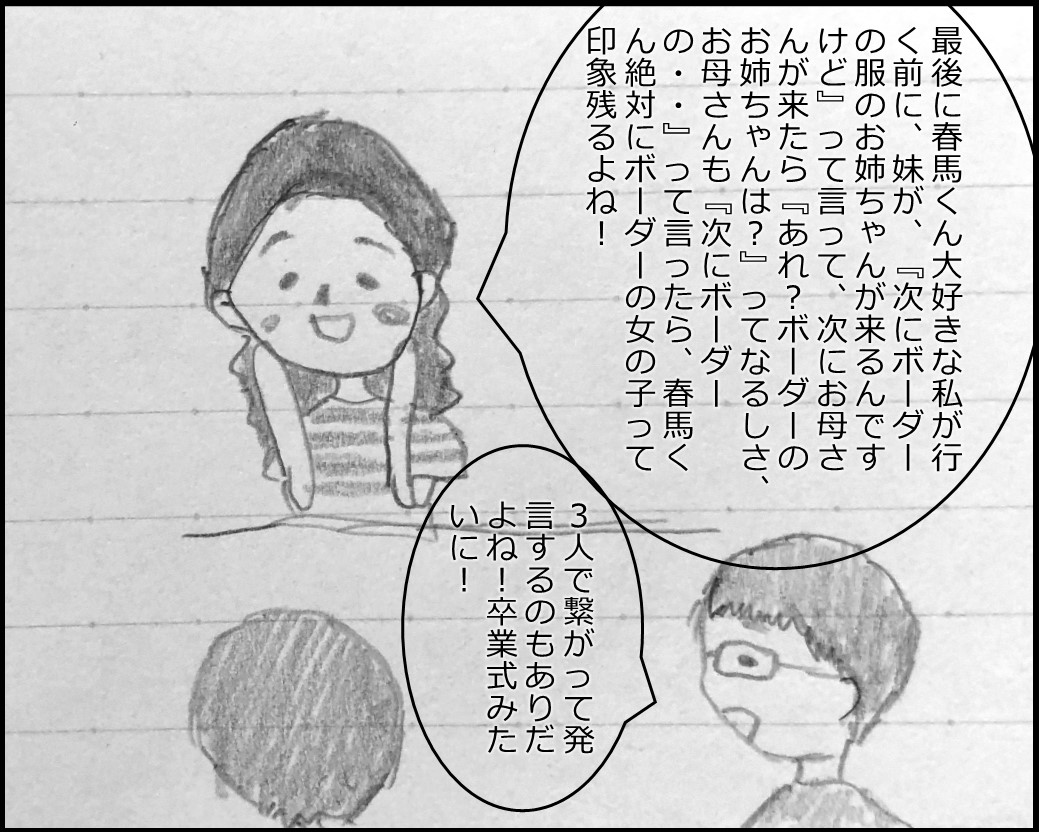 最後に春馬くん大好きな私が行
く前に、妹が、『次にボーダー
の服のお姉ちゃんが来るんです
けど』って言って、次にお母さ
んが来たら『あれ？ボーダーの
お姉ちゃんは？』ってなるしさ、
お母さんも『次にボーダー
の・・』って言ったら、春馬く
ん絶対にボーダーの女の子って
印象残るよね！
３人で繋がって発
言するのもありだ
よね！卒業式みた
いに！